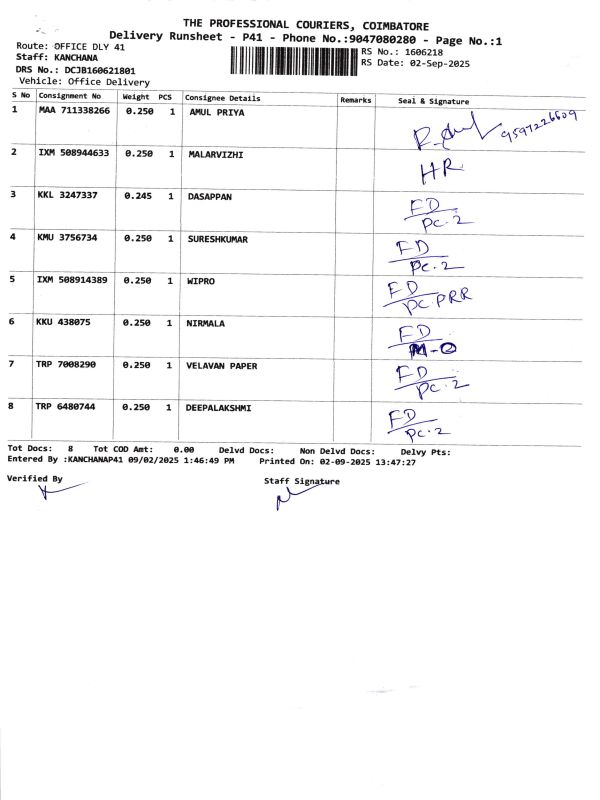 THE PROFESSIONAL COURIERS, COIMBATORE
Delivery Runsheet - P41 - Phone No.:9047080280 - Page No.:1
Route: OFFICE DLY 41
RS No.: 1606218
Staff: KANCHANA
RS Date: 02-Sep-2025
DRS No.: DCJB160621801
Vehicle: Office Delivery
S No Consignment No Weight PCS Consignee Details Remarks Seal & Signature
1 MAA 711338266 0.250 1 AMUL PRIYA 9597226609
2 IXM 508944633 0.250 1 MALARVIZHI HR.
3 KKL 3247337 0.245 1 DASAPPAN FD
PC.2
4 KMU 3756734 0.250 1 SURESHKUMAR FD
PC.2
5 IXM 508914389 0.250 1 WIPRO FD
PC.PRR
6 KKU 438075 0.250 1 NIRMALA FD
7 TRP 7008290 0.250 1 VELAVAN PAPER FD
PC.2
8 TRP 6480744 0.250 1 DEEPALAKSHMI FD
PC.2
Tot Docs: 8 Tot COD Amt: 0.00 Delvd Docs: Non Delvd Docs: Delvy Pts:
Entered By :KANCHANAP41 09/02/2025 1:46:49 PM Printed On: 02-09-2025 13:47:27
Verified By Staff Signature